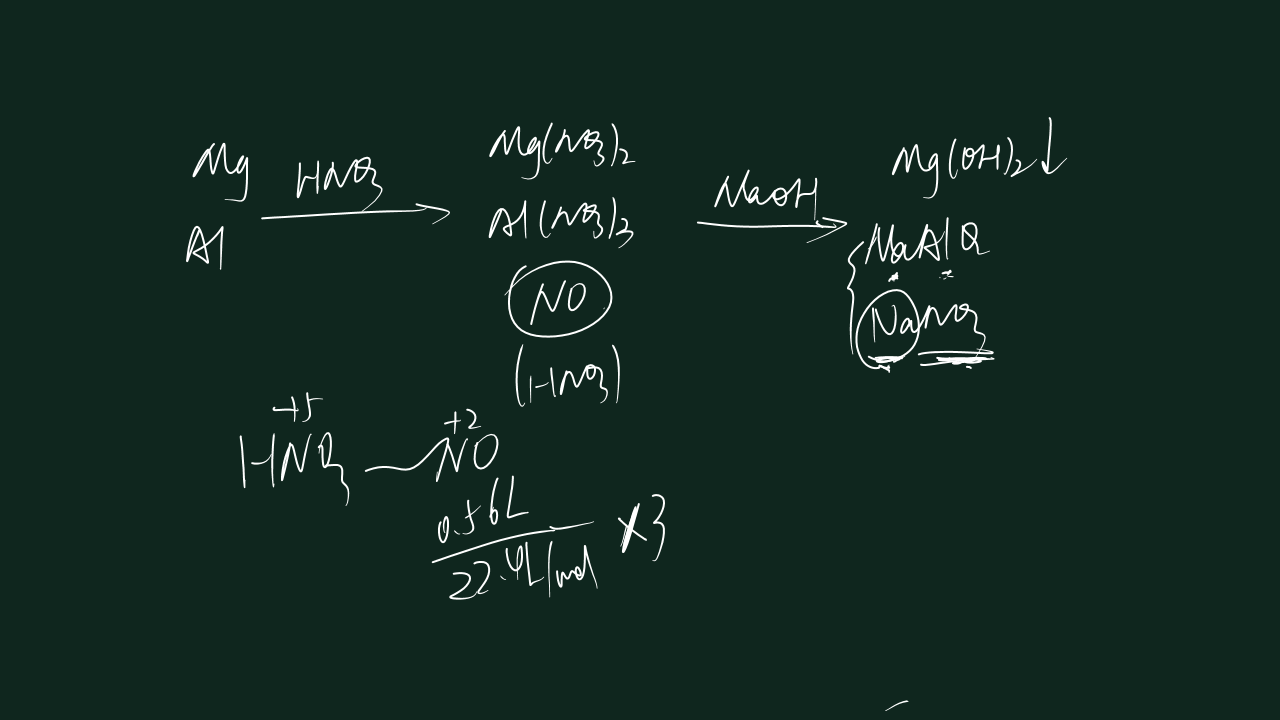 Mg
Al
HNO3
Mg(NO3)2
Al(NO3)3
NO
(HNO3)
NaOH
Mg(OH)2↓
NaAlO2
NaNO3
+5
HNO3
+2
NO
0.56L
22.4L/mol
×3